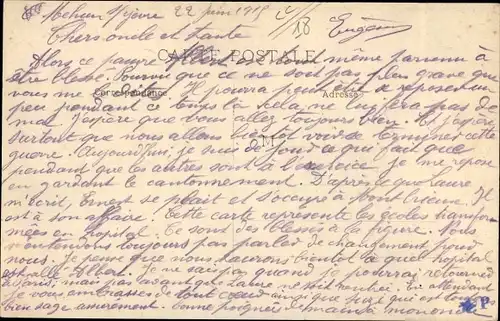 Mehun s/Yèvre 22 juin 1915
18
Eugène
Chers oncle et tante
CARTE POSTALE
Alors ce pauvre Albert est même parvenu à
être blessé. Pourvu que ce ne soit pas plus grave que
vous me Il pourra peut être se reposer un
Correspondance Adresse
peu pendant ce temps là. Cela ne lui fera pas de
mal. J'espère que vous allez toujours bien. Et j'espère
surtout que nous allons bientôt voir se terminer cette
guerre. Aujourd'hui je suis de ce qui fait que
pendant que les autres sont à l'exercice je me repose
en gardant le cantonnement. D'après ce que Laure
m'écrit, Ernest se plait et s'occupe à Il
est à son affaire. Cette carte représente les écoles transfor
mées en hopital. Ce sont des blessés à la figure. Nous
n'entendons toujours pas parler de changement pour
nous. Je pense que nous saurons bientôt à quel hopital
est allé Albert. Je ne sais pas quand je pourrai retourner
à Paris, mais pas avant que Laure ne soit En attendant
je vous embrasse de tout cœur ainsi que qui est toujours
bien sage assurément. bonne poignée de main à mon oncle
P